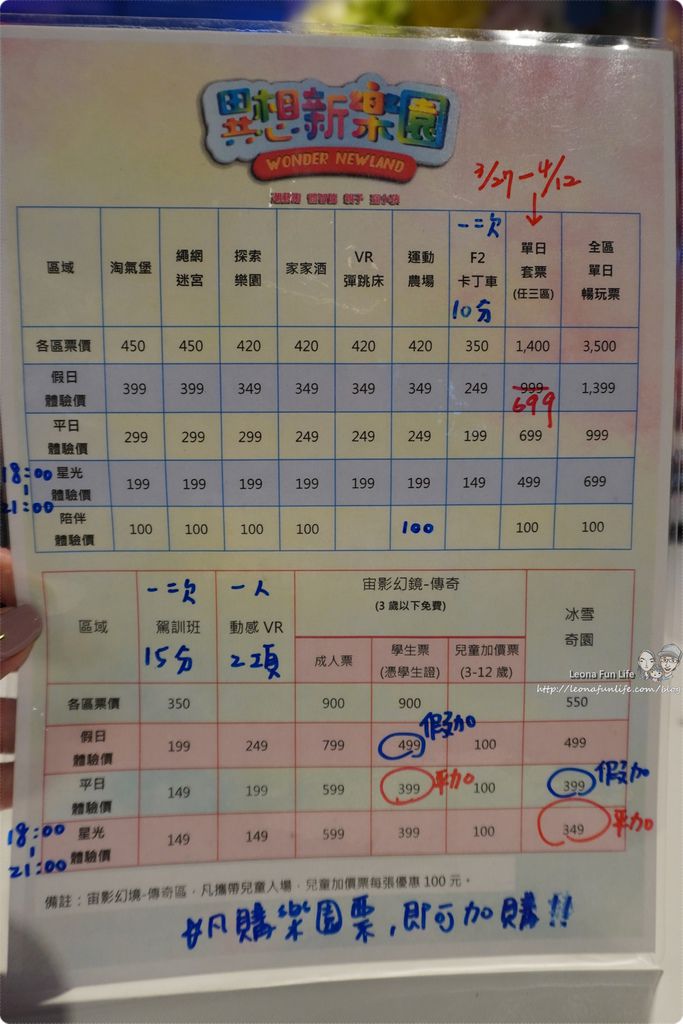 異想新樂園
WONDER NEWLAND
3/27-4/12
區域 淘氣堡 繩網迷宮 探索樂園 家家酒 VR彈跳床 運動農場 一=次 F2卡丁車 10分 單日套票(任三區) 全區單日暢玩票
各區票價 450 450 420 420 420 420 350 1,400 3,500
假日體驗價 399 399 349 349 349 349 249 999 699 1,399
平日體驗價 299 299 299 249 249 249 199 699 999
18:00 | 21:00 星光體驗價 199 199 199 199 199 199 149 499 699
陪伴體驗價 100 100 100 100 100 100 100
區域 一=次 駕訓班 15分 一人 動感 VR 2項 宙影幻鏡-傳奇 冰雪奇園
(3 歲以下免費)
成人票 學生票(憑學生證) 兒童加價票(3-12 歲)
Leona Fun Life
http://leonafunlife.com/blog
各區票價 350 900 900 550
假日體驗價 199 249 799 499 假加 100 499
平日體驗價 149 199 599 399 平加 100 399 假加
18:00 | 21:00 星光體驗價 149 149 599 399 100 349 平加
備註：宙影幻境-傳奇區，凡攜帶兒童入場，兒童加價票每張優惠 100 元。
#凡購樂園票,即可加購!!